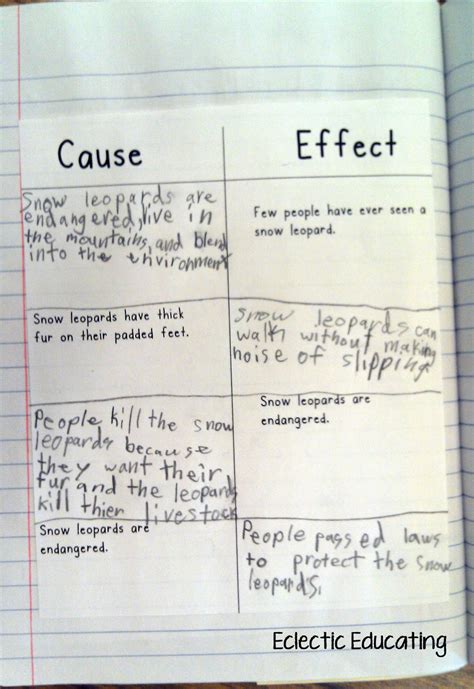 Cause
Effect
Snow leopards are
endangered, live in
the mountains, and blend
into the environment
Few people have ever seen a
snow leopard.
Snow leopards have thick
fur on their padded feet.
Snow leopards can
walk without making
noise of slipping.
People kill the snow
leopards because
they want their
fur and the leopards
kill thier livestock
Snow leopards are
endangered.
Snow leopards are
endangered.
People passed laws
to protect the snow
leopards.
Eclectic Educating